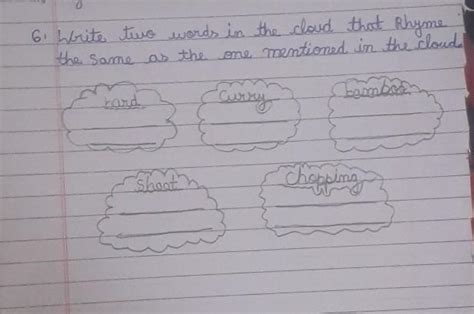 6. Write two words in the cloud that Rhyme
the same as the one mentioned in the cloud.
hard
Curry
bamboo
Shoot
Chopping